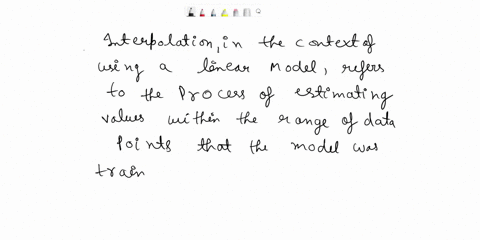 Interpolation, in the context of
using a linear Model, refers
to the process of estimating
values within the range of data
points that the model was
train